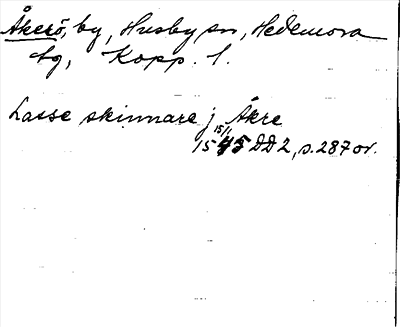 Åkerö, by, Husby sn, Hedemora
tg, Kopp. l.
Lasse skinnare j Åkre
15/1
1545 DD2, s. 287 or.